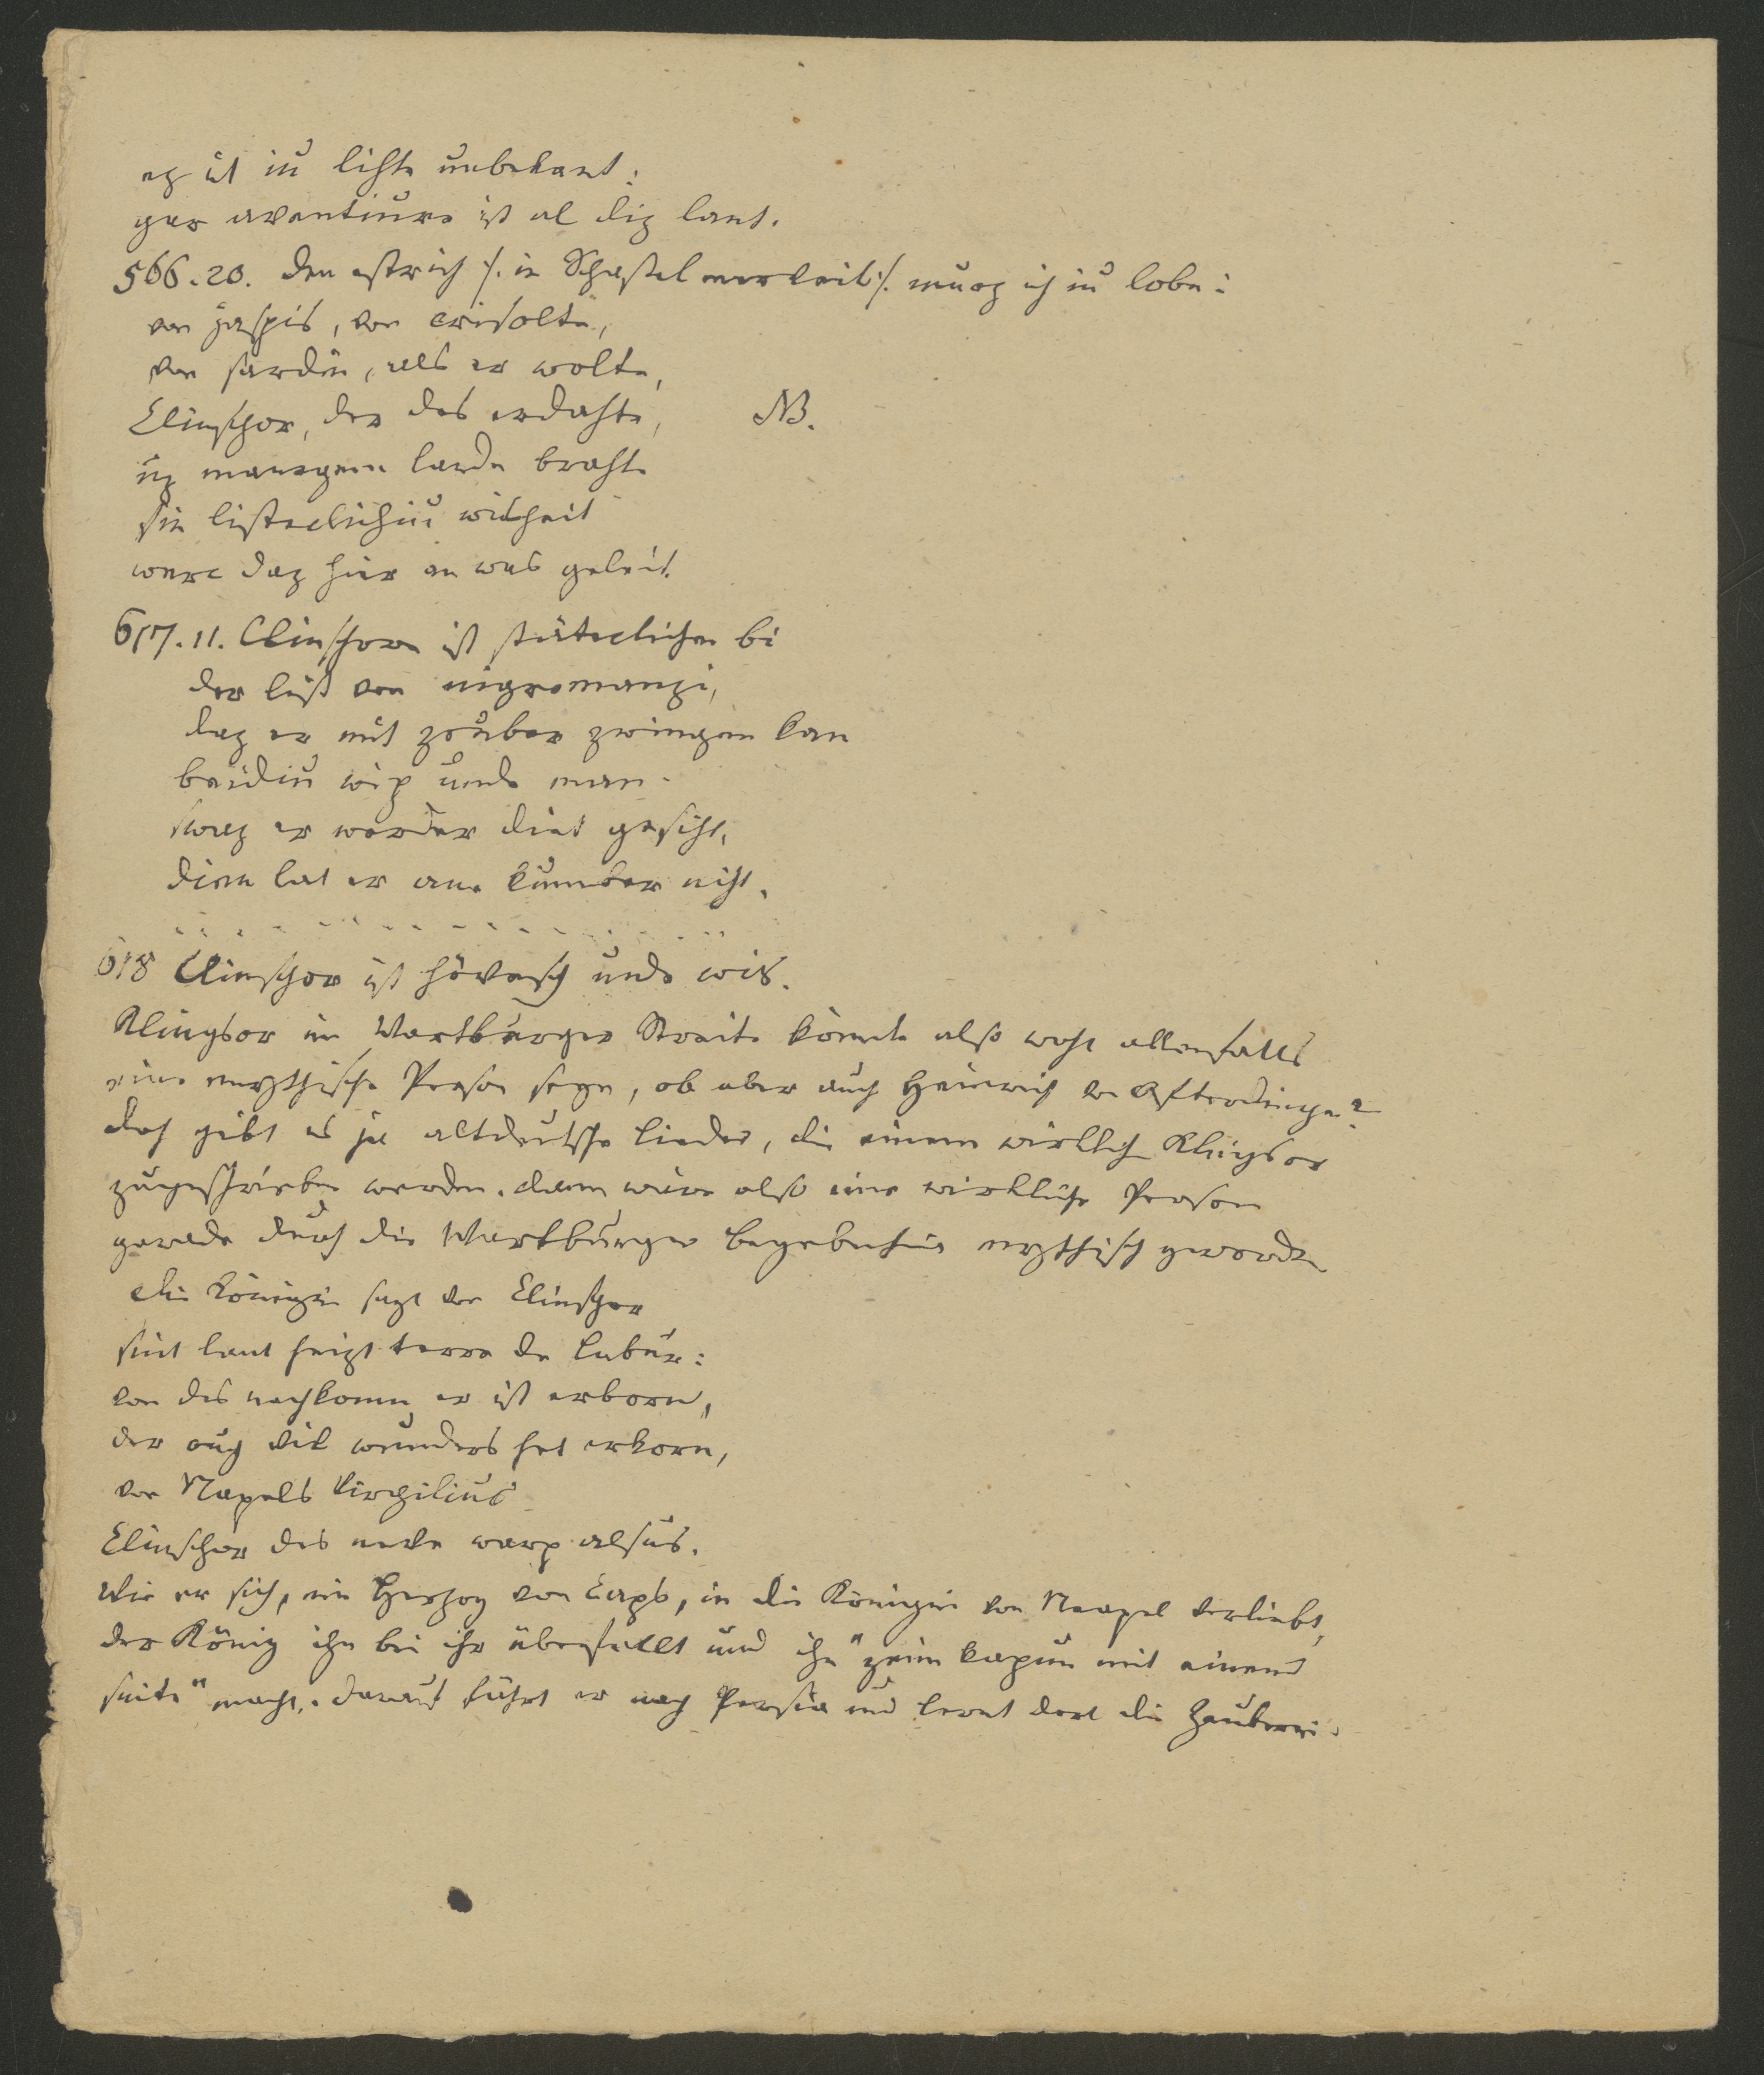 ez ist iu lihte unbekant:
gar aventiure ist al diz lant.
566.20. den estrich /. in Schastel merveil ./. muoz ich iu lobn:
von jaspis, von crisolte,
von sardin, als er wolte,
Clinschor, der des erdahte, NB.
uz manegem lande brahte
sin listeclichiu wisheit
werc daz hier an was geleit.
617.11. Clinschore ist stäteclichen bi
der list von nigromanzi,
daz er mit zouber zwingen kan
beidiu wip unde man.
swaz er werder diet gesiht,
dien lat er ane kumber niht.
618 Clinschor ist hövesch unde wis.
Klingsor im Wartburger Streite könnte also wohl allenfalls
eine mythische Person seyn, ob aber auch Heinrich von Ofterdingen?
doch gibt es ja altdeutsche Lieder, die einem wirklichen Klingsor
zugeschrieben werden. dann wäre also eine wirkliche Person
gerade durch die Wartburger Begebenheit mythisch geworden
die Königin sagt von Clinschor
sint lant heizt terre de Labur:
von des nachkomn er ist erborn,
der ouch vil wunders het erkorn,
von Napels Virgilius
Clinschor des neve warp alsus.
Wie er sich, ein Herzog von Caps, in die Königin von Neapel verliebt,
der König ihn bei ihr überfällt und ihn "zeim kapun mit einem
snite" macht. darauf fährt er nach Persia und lernt dort die Zauberei.